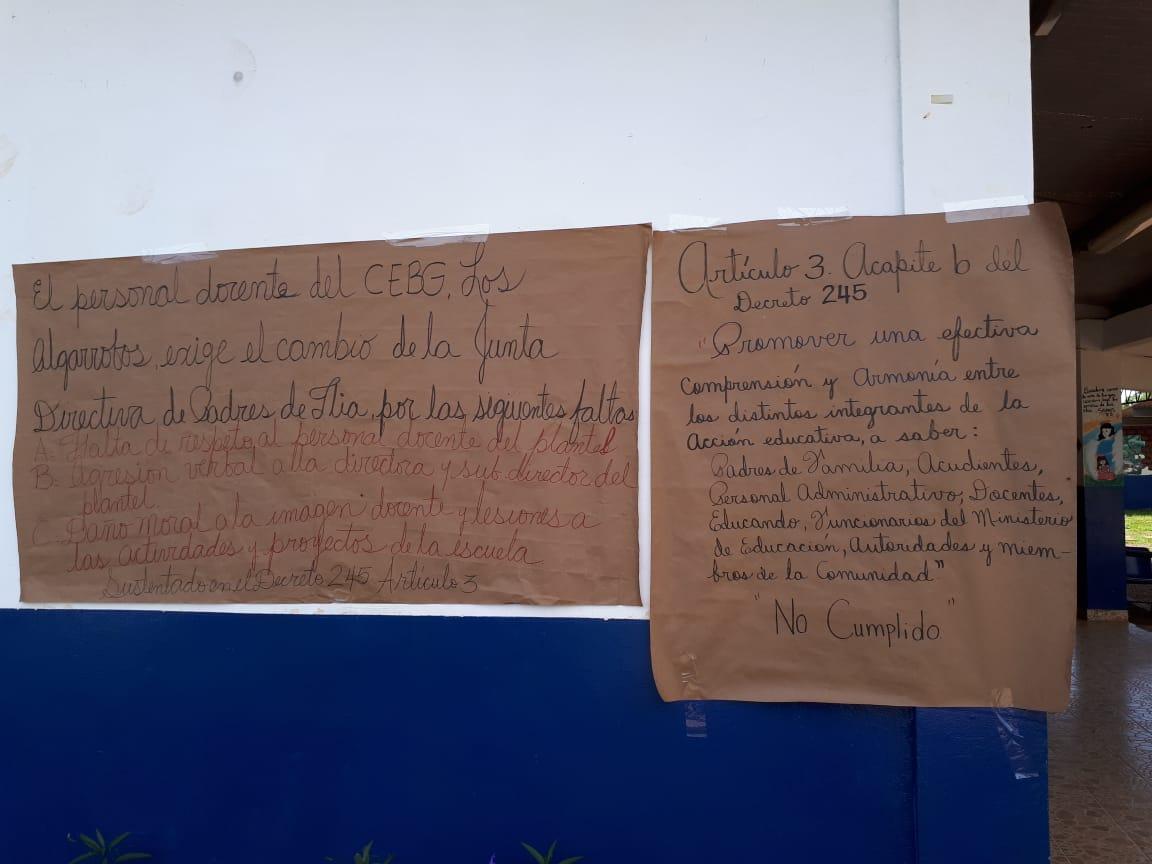 El personal docente del CEBG. Los
Algarrobos, exige el cambio de la Junta
Directiva de Padres de Flia, por las siguientes faltas
A. Falta de respeto al personal docente del plantel
B. Agresion verbal a la directora y sub director del
plantel.
C. Daño moral a la imagen docente y lesiones a
las actividades y proyectos de la escuela
Sustentado en el Decreto 245 Artículo 3
Artículo 3. Acapite b del
Decreto 245
"Promover una efectiva
comprensión y armonía entre
los distintos integrantes de la
Acción educativa, a saber:
Padres de Familia, Acudientes,
Personal Administrativo, Docentes,
Educando, Funcionarios del Ministerio
de Educación, Autoridades y miem-
bros de la Comunidad"
"No Cumplido"